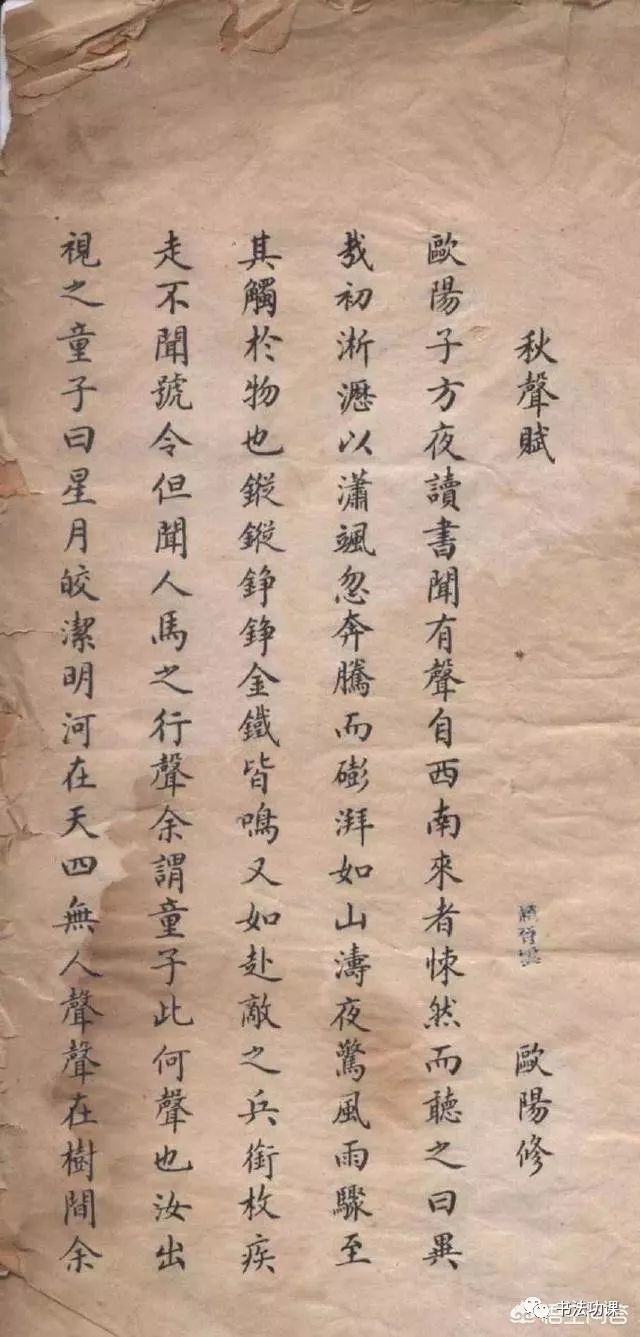 秋聲賦 歐陽修
歐陽子方夜讀書聞有聲自西南來者悚然而聽之曰異
哉初淅瀝以瀟颯忽奔騰而湃如山濤夜驚風雨驟至
其觸於物也鏦鏦錚錚金鐵皆鳴又如赴敵之兵銜枚疾
走不聞號令但聞人馬之行聲余謂童子此何聲也汝出
視之童子曰星月皎潔明河在天四無人聲聲在樹間余
书法功课